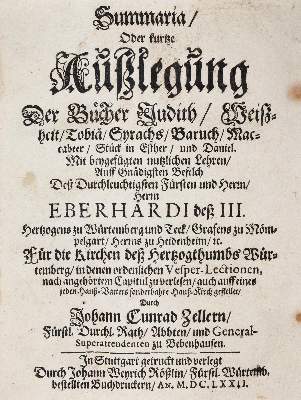 Summaria/
Oder kurtze
Außlegung
Der Bücher Judith/ Weiß-
heit/Tobiä/Syrachs/Baruch/Mac-
cabeer/ Stück in Esther/ und Daniel.
Mit beygefügten nutzlichen Lehren/
Auff Gnädigsten Befelch
Deß Durchleuchtigsten Fürsten und Herrn/
Herrn
EBERHARDI deß III.
Hertzogens zu Würtemberg und Teck/ Grafens zu Möm-
pelgart/ Herrns zu Heidenheim/ ꝛc.
Für die Kirchen deß Hertzogthumbs Wür-
temberg/ in denen ordenlichen Vesper-Lectionen,
nach angehörtem Capitul zu verlesen/ auch auff eines
jeden Hauß-Vatters sonderbahre Hauß-Kirch gestellet/
Durch
Johann Cunrad Zellern/
Fürstl. Durchl. Rath/ Abbten/ und General-
Superattendenten zu Bebenhausen.
In Stuttgart getruckt und verlegt
Durch Johann Weyrich Rößlin/ Fürstl. Würtemb.
bestellten Buchdruckern/ An. M. DC. LXXII.